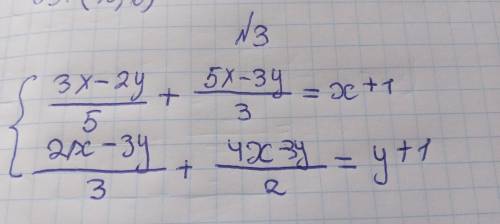 №3
{ (3x-2y)/5 + (5x-3y)/3 = x+1
(2x-3y)/3 + (4x-3y)/2 = y+1